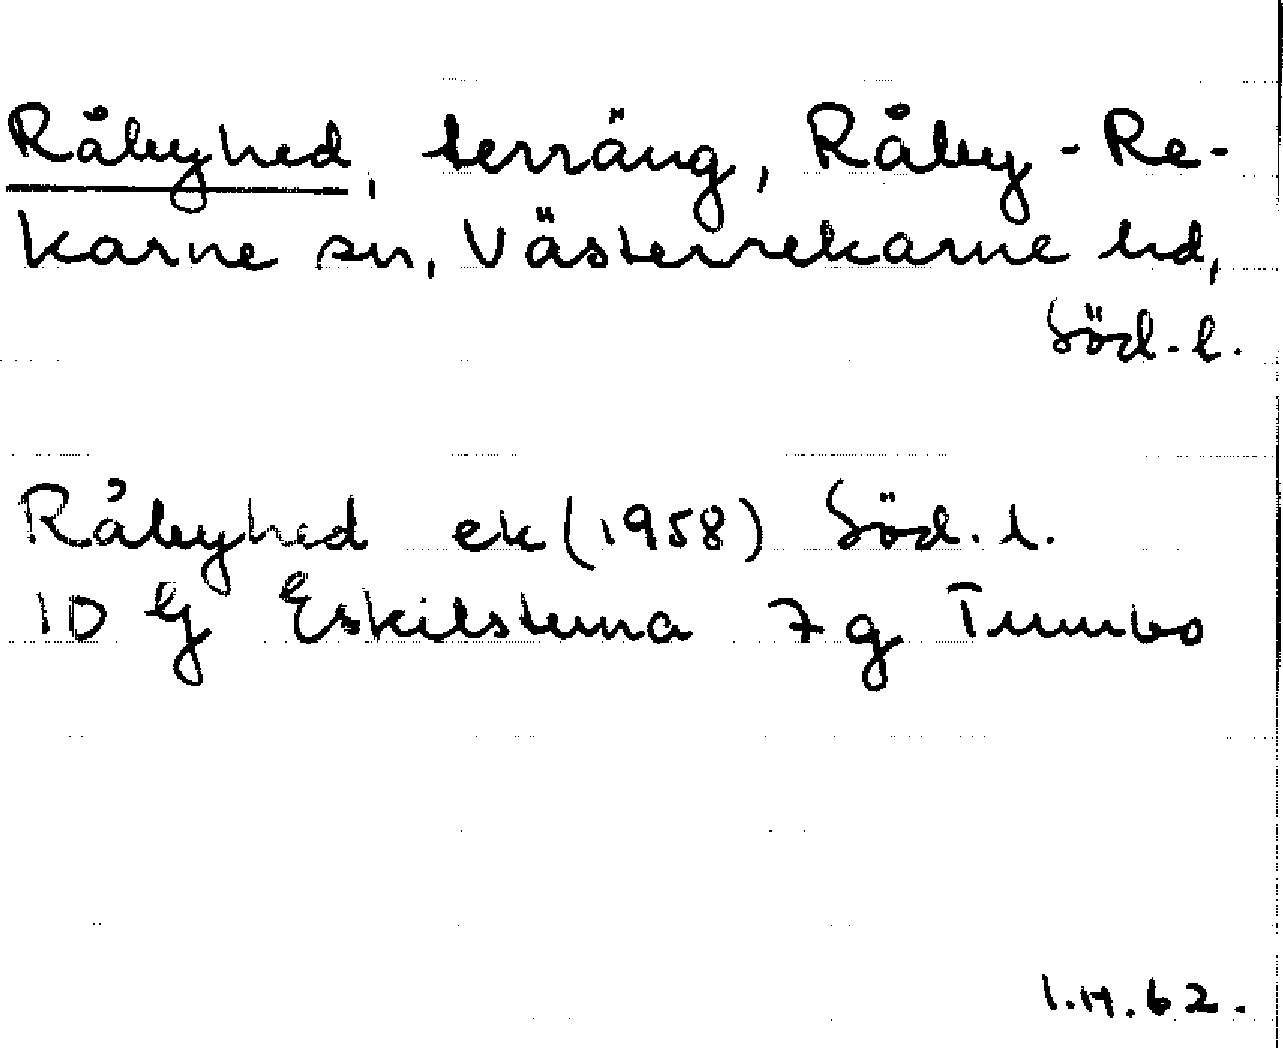 Råbyhed, terräng, Råby-Re-
karne sn, Västerrekarne hd,
Söd.l.
Råbyhed ek (1958) Söd.l.
10 G Eskilstuna 7 g Tumbo
I.H.62.